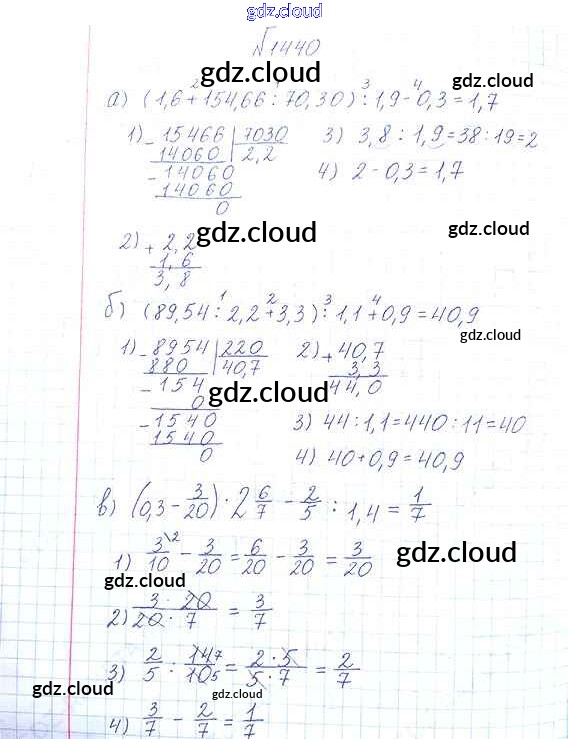 gdz.cloud
№1440
gdz.cloud gdz.cloud
а) (1,6 + 154,66 : 70,30) : 1,9 - 0,3 = 1,7
2 1 3 4
1) - 15466 | 7030
14060 | 2,2
- 14060
14060
0
3) 3,8 : 1,9 = 38 : 19 = 2
4) 2 - 0,3 = 1,7
gdz.cloud gdz.cloud
2) + 2,2
1,6
3,8
б) (89,54 : 2,2 + 3,3) : 1,1 + 0,9 = 40,9
1 2 3 4
gdz.cloud
1) - 8954 | 220
880 | 40,7
- 154
0
- 1540
1540
0
2) + 40,7
3,3
44,0
gdz.cloud
3) 44 : 1,1 = 440 : 11 = 40
4) 40 + 0,9 = 40,9
gdz.cloud
в) (0,3 - 3/20) · 2 6/7 - 2/5 : 1,4 = 1/7
1) 3\2/10 - 3/20 = 6/20 - 3/20 = 3/20
gdz.cloud
gdz.cloud
2) 3 · 20/20 · 7 = 3/7
gdz.cloud
3) 2/5 : 14 7/10 5 = 2 · 5/5 · 7 = 2/7
gdz.cloud gdz.cloud
4) 3/7 - 2/7 = 1/7
gdz.cloud